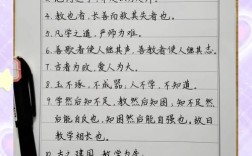 4. 教也者,长善而救其失者也。
5. 凡学之道,严师为难。
6. 善歌者使人继其声,善教者使人继其志。
7. 古者为政,爱人为大。
8. 玉不琢,不成器,人不学,不知道。
9. 学然后知不足,教然后知困,知不足然
后能自反也,知困然后能自强也,故曰
教学相长也。